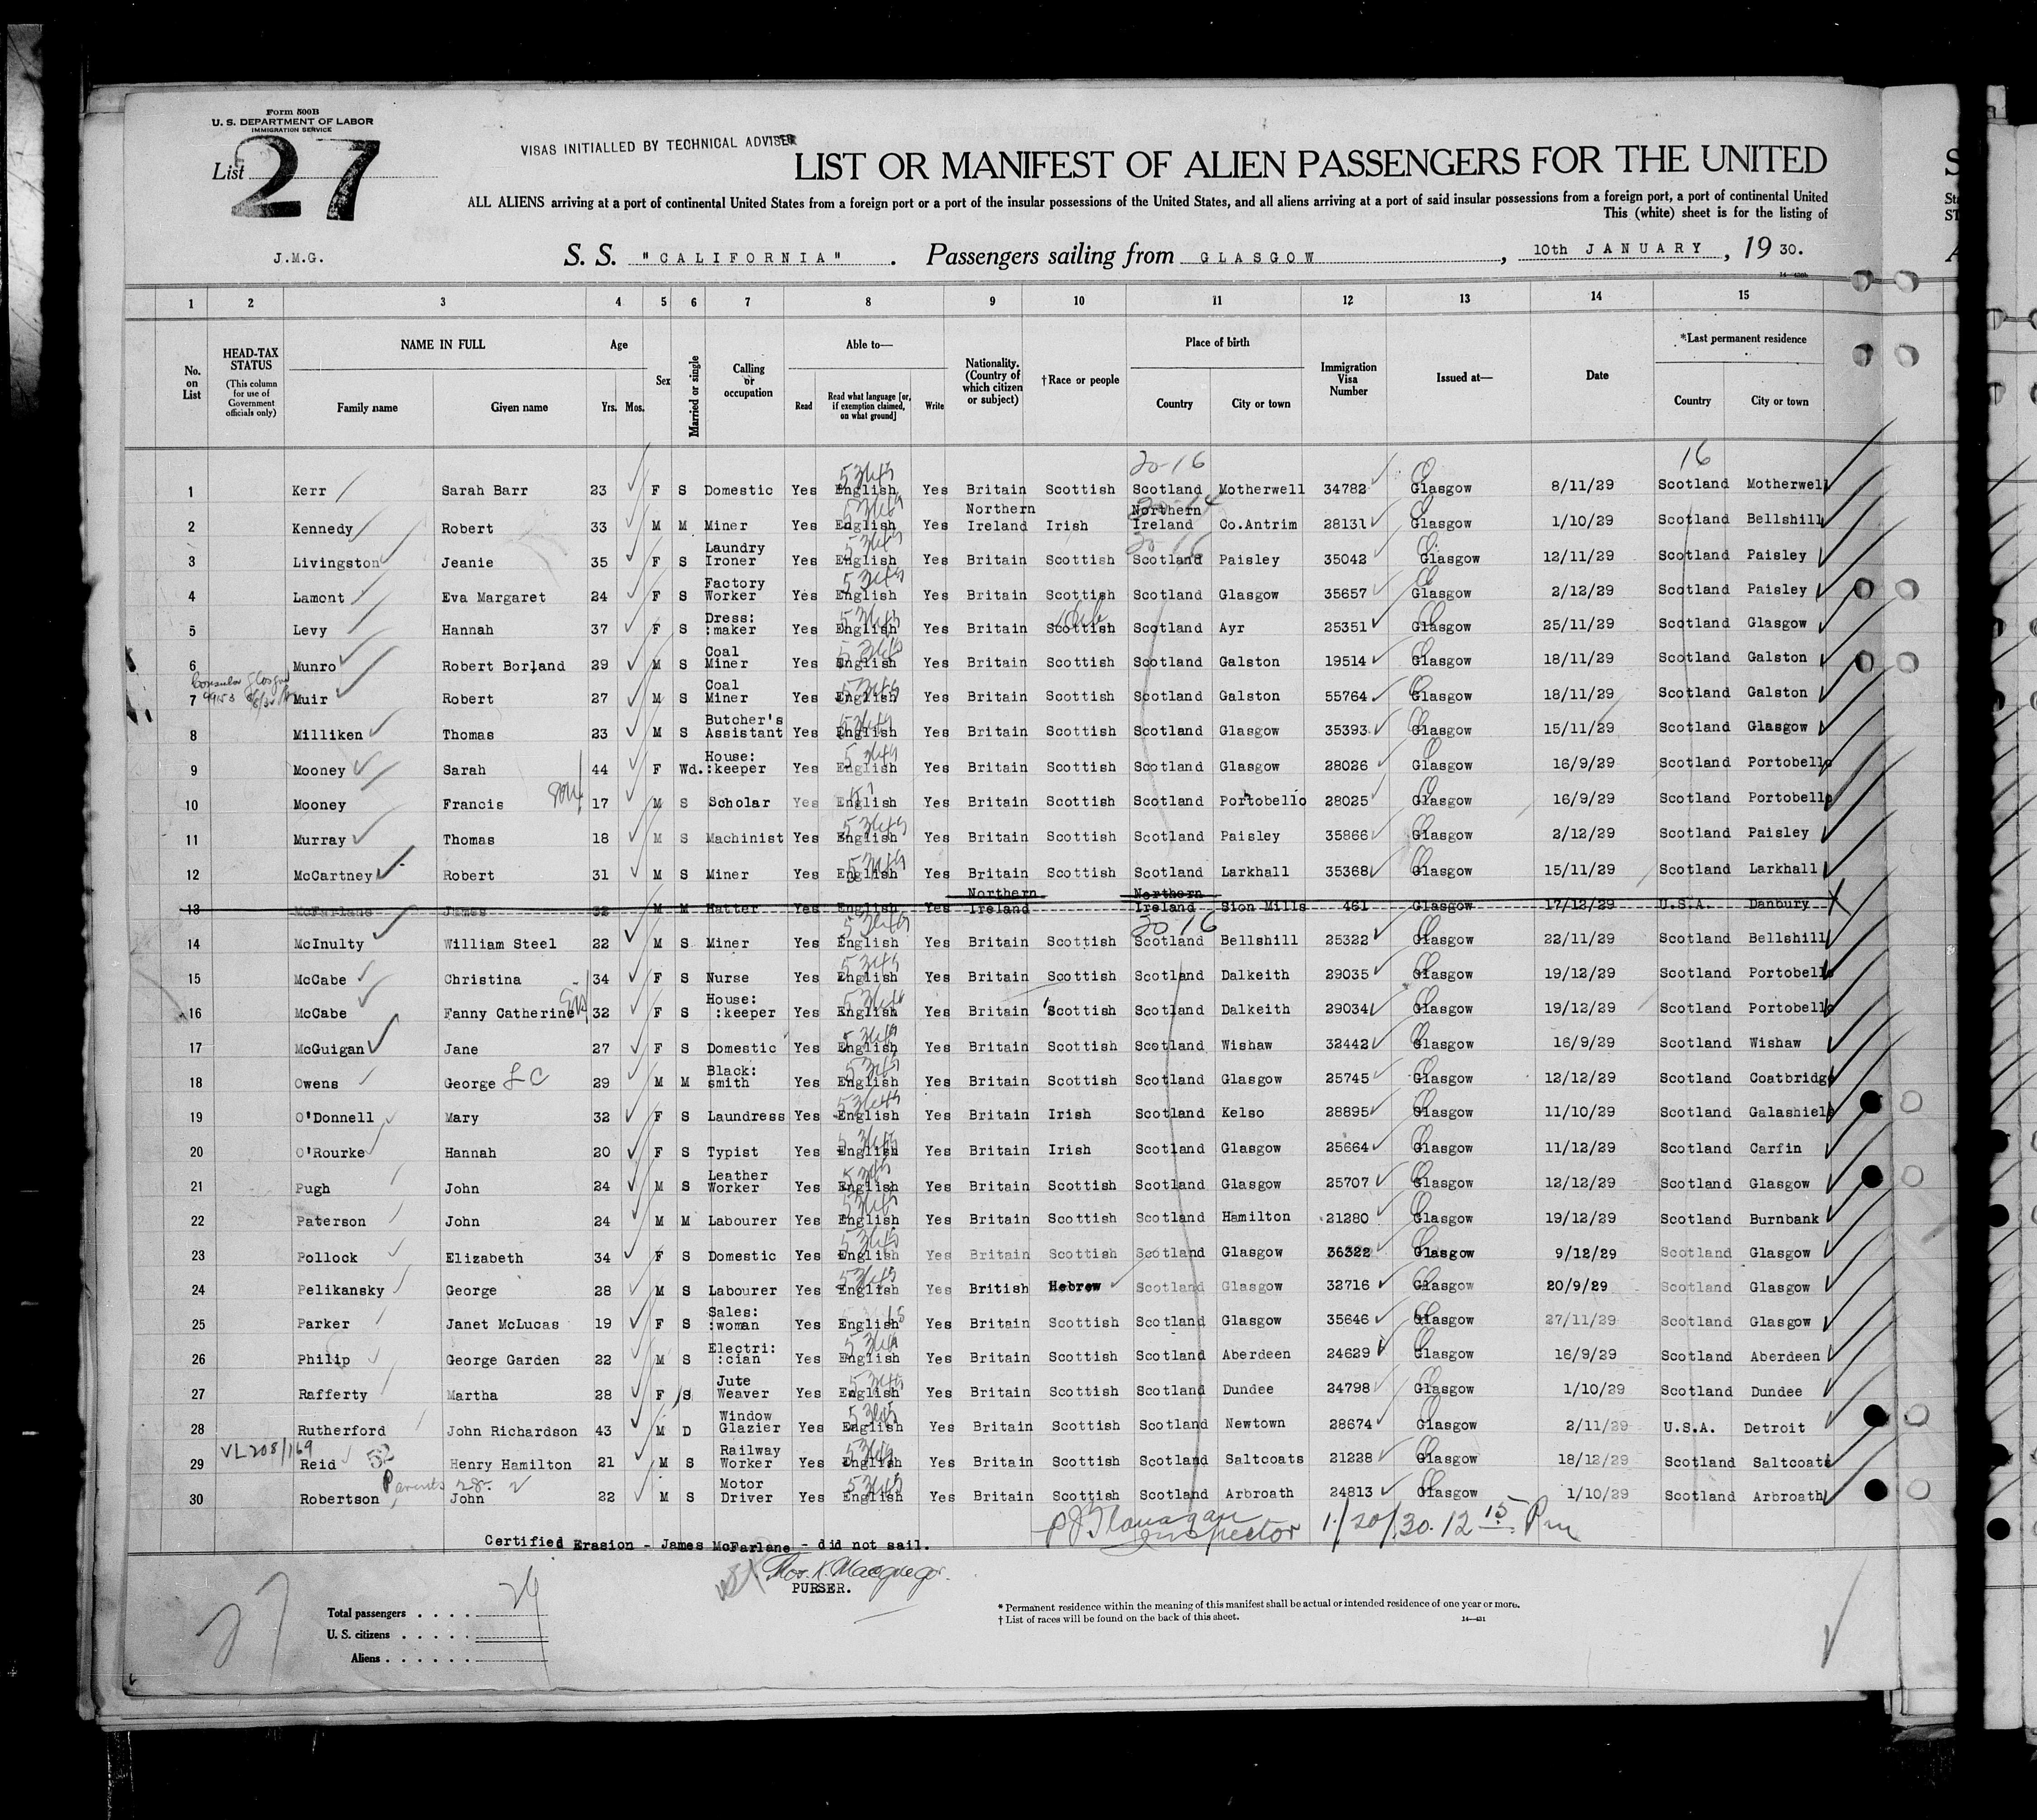 Form 500B
U. S. DEPARTMENT OF LABOR
IMMIGRATION SERVICE
List 27
VISAS INITIALLED BY TECHNICAL ADVISER
LIST OR MANIFEST OF ALIEN PASSENGERS FOR THE UNITED
ALL ALIENS arriving at a port of continental United States from a foreign port or a port of the insular possessions of the United States, and all aliens arriving at a port of said insular possessions from a foreign port, a port of continental United
This (white) sheet is for the listing of
J.M.G. S. S. "CALIFORNIA". Passengers sailing from GLASGOW, 10th JANUARY, 19 30.
1 2 3 4 5 6 7 8 9 10 11 12 13 14 15
No. on List HEAD-TAX STATUS (This column for use of Government officials only) NAME IN FULL Family name Given name Age Yrs. Mos. Sex Married or single Calling or occupation Able to— Read Read what language [or, if exemption claimed, on what ground] Write Nationality. (Country of which citizen or subject) †Race or people Place of birth Country City or town Immigration Visa Number Issued at— Date *Last permanent residence Country City or town
20-16 16
1 Kerr Sarah Barr 23 F S Domestic Yes English Yes Britain Scottish Scotland Motherwell 34782 Glasgow 8/11/29 Scotland Motherwell
2 Kennedy Robert 33 M M Miner Yes English Yes Northern Ireland Irish Northern Ireland Co.Antrim 28131 Glasgow 1/10/29 Scotland Bellshill
3 Livingston Jeanie 35 F S Laundry Ironer Yes English Yes Britain Scottish Scotland Paisley 35042 Glasgow 12/11/29 Scotland Paisley
4 Lamont Eva Margaret 24 F S Factory Worker Yes English Yes Britain Scottish Scotland Glasgow 35657 Glasgow 2/12/29 Scotland Paisley
5 Levy Hannah 37 F S Dress: :maker Yes English Yes Britain Scottish Scotland Ayr 25351 Glasgow 25/11/29 Scotland Glasgow
6 Munro Robert Borland 29 M S Coal Miner Yes English Yes Britain Scottish Scotland Galston 19514 Glasgow 18/11/29 Scotland Galston
7 Muir Robert 27 M S Coal Miner Yes English Yes Britain Scottish Scotland Galston 55764 Glasgow 18/11/29 Scotland Galston
8 Milliken Thomas 23 M S Butcher's Assistant Yes English Yes Britain Scottish Scotland Glasgow 35393 Glasgow 15/11/29 Scotland Glasgow
9 Mooney Sarah 44 F Wd. House: :keeper Yes English Yes Britain Scottish Scotland Glasgow 28026 Glasgow 16/9/29 Scotland Portobello
10 Mooney Francis son 17 M S Scholar Yes English Yes Britain Scottish Scotland Portobello 28025 Glasgow 16/9/29 Scotland Portobello
11 Murray Thomas 18 M S Machinist Yes English Yes Britain Scottish Scotland Paisley 35866 Glasgow 2/12/29 Scotland Paisley
12 McCartney Robert 31 M S Miner Yes English Yes Britain Scottish Scotland Larkhall 35368 Glasgow 15/11/29 Scotland Larkhall
13 McFarlane James 32 M M Hatter Yes English Yes Northern Ireland Northern Ireland Sion Mills 461 Glasgow 17/12/29 U.S.A. Danbury
20 16
14 McInulty William Steel 22 M S Miner Yes English Yes Britain Scottish Scotland Bellshill 25322 Glasgow 22/11/29 Scotland Bellshill
15 McCabe Christina 34 F S Nurse Yes English Yes Britain Scottish Scotland Dalkeith 29035 Glasgow 19/12/29 Scotland Portobello
16 McCabe Fanny Catherine Sis 32 F S House: :keeper Yes English Yes Britain Scottish Scotland Dalkeith 29034 Glasgow 19/12/29 Scotland Portobello
17 McGuigan Jane 27 F S Domestic Yes English Yes Britain Scottish Scotland Wishaw 32442 Glasgow 16/9/29 Scotland Wishaw
18 Owens George 29 M M Black: smith Yes English Yes Britain Scottish Scotland Glasgow 25745 Glasgow 12/12/29 Scotland Coatbridge
19 O'Donnell Mary 32 F S Laundress Yes English Yes Britain Irish Scotland Kelso 28895 Glasgow 11/10/29 Scotland Galashiels
20 O'Rourke Hannah 20 F S Typist Yes English Yes Britain Irish Scotland Glasgow 25664 Glasgow 11/12/29 Scotland Carfin
21 Pugh John 24 M S Leather Worker Yes English Yes Britain Scottish Scotland Glasgow 25707 Glasgow 12/12/29 Scotland Glasgow
22 Paterson John 24 M M Labourer Yes English Yes Britain Scottish Scotland Hamilton 21280 Glasgow 19/12/29 Scotland Burnbank
23 Pollock Elizabeth 34 F S Domestic Yes English Yes Britain Scottish Scotland Glasgow 36322 Glasgow 9/12/29 Scotland Glasgow
24 Pelikansky George 28 M S Labourer Yes English Yes British Hebrew Scotland Glasgow 32716 Glasgow 20/9/29 Scotland Glasgow
25 Parker Janet McLucas 19 F S Sales: :woman Yes English Yes Britain Scottish Scotland Glasgow 35646 Glasgow 27/11/29 Scotland Glasgow
26 Philip George Garden 22 M S Electri: :cian Yes English Yes Britain Scottish Scotland Aberdeen 24629 Glasgow 16/9/29 Scotland Aberdeen
27 Rafferty Martha 28 F S Jute Weaver Yes English Yes Britain Scottish Scotland Dundee 24798 Glasgow 1/10/29 Scotland Dundee
28 Rutherford John Richardson 43 M D Window Glazier Yes English Yes Britain Scottish Scotland Newtown 28674 Glasgow 2/11/29 U.S.A. Detroit
29 Reid Henry Hamilton 21 M S Railway Worker Yes English Yes Britain Scottish Scotland Saltcoats 21228 Glasgow 18/12/29 Scotland Saltcoats
30 Robertson John 22 M S Motor Driver Yes English Yes Britain Scottish Scotland Arbroath 24813 Glasgow 1/10/29 Scotland Arbroath
P J Flanagan Inspector 1/20/30. 12 15 Pm
Certified Erasion - James McFarlane - did not sail.
Thos. K. Macgregor.
PURSER.
27
Total passengers . . . . 29
U. S. citizens . . . . .
Aliens . . . . . .
* Permanent residence within the meaning of this manifest shall be actual or intended residence of one year or more.
† List of races will be found on the back of this sheet.
14—431